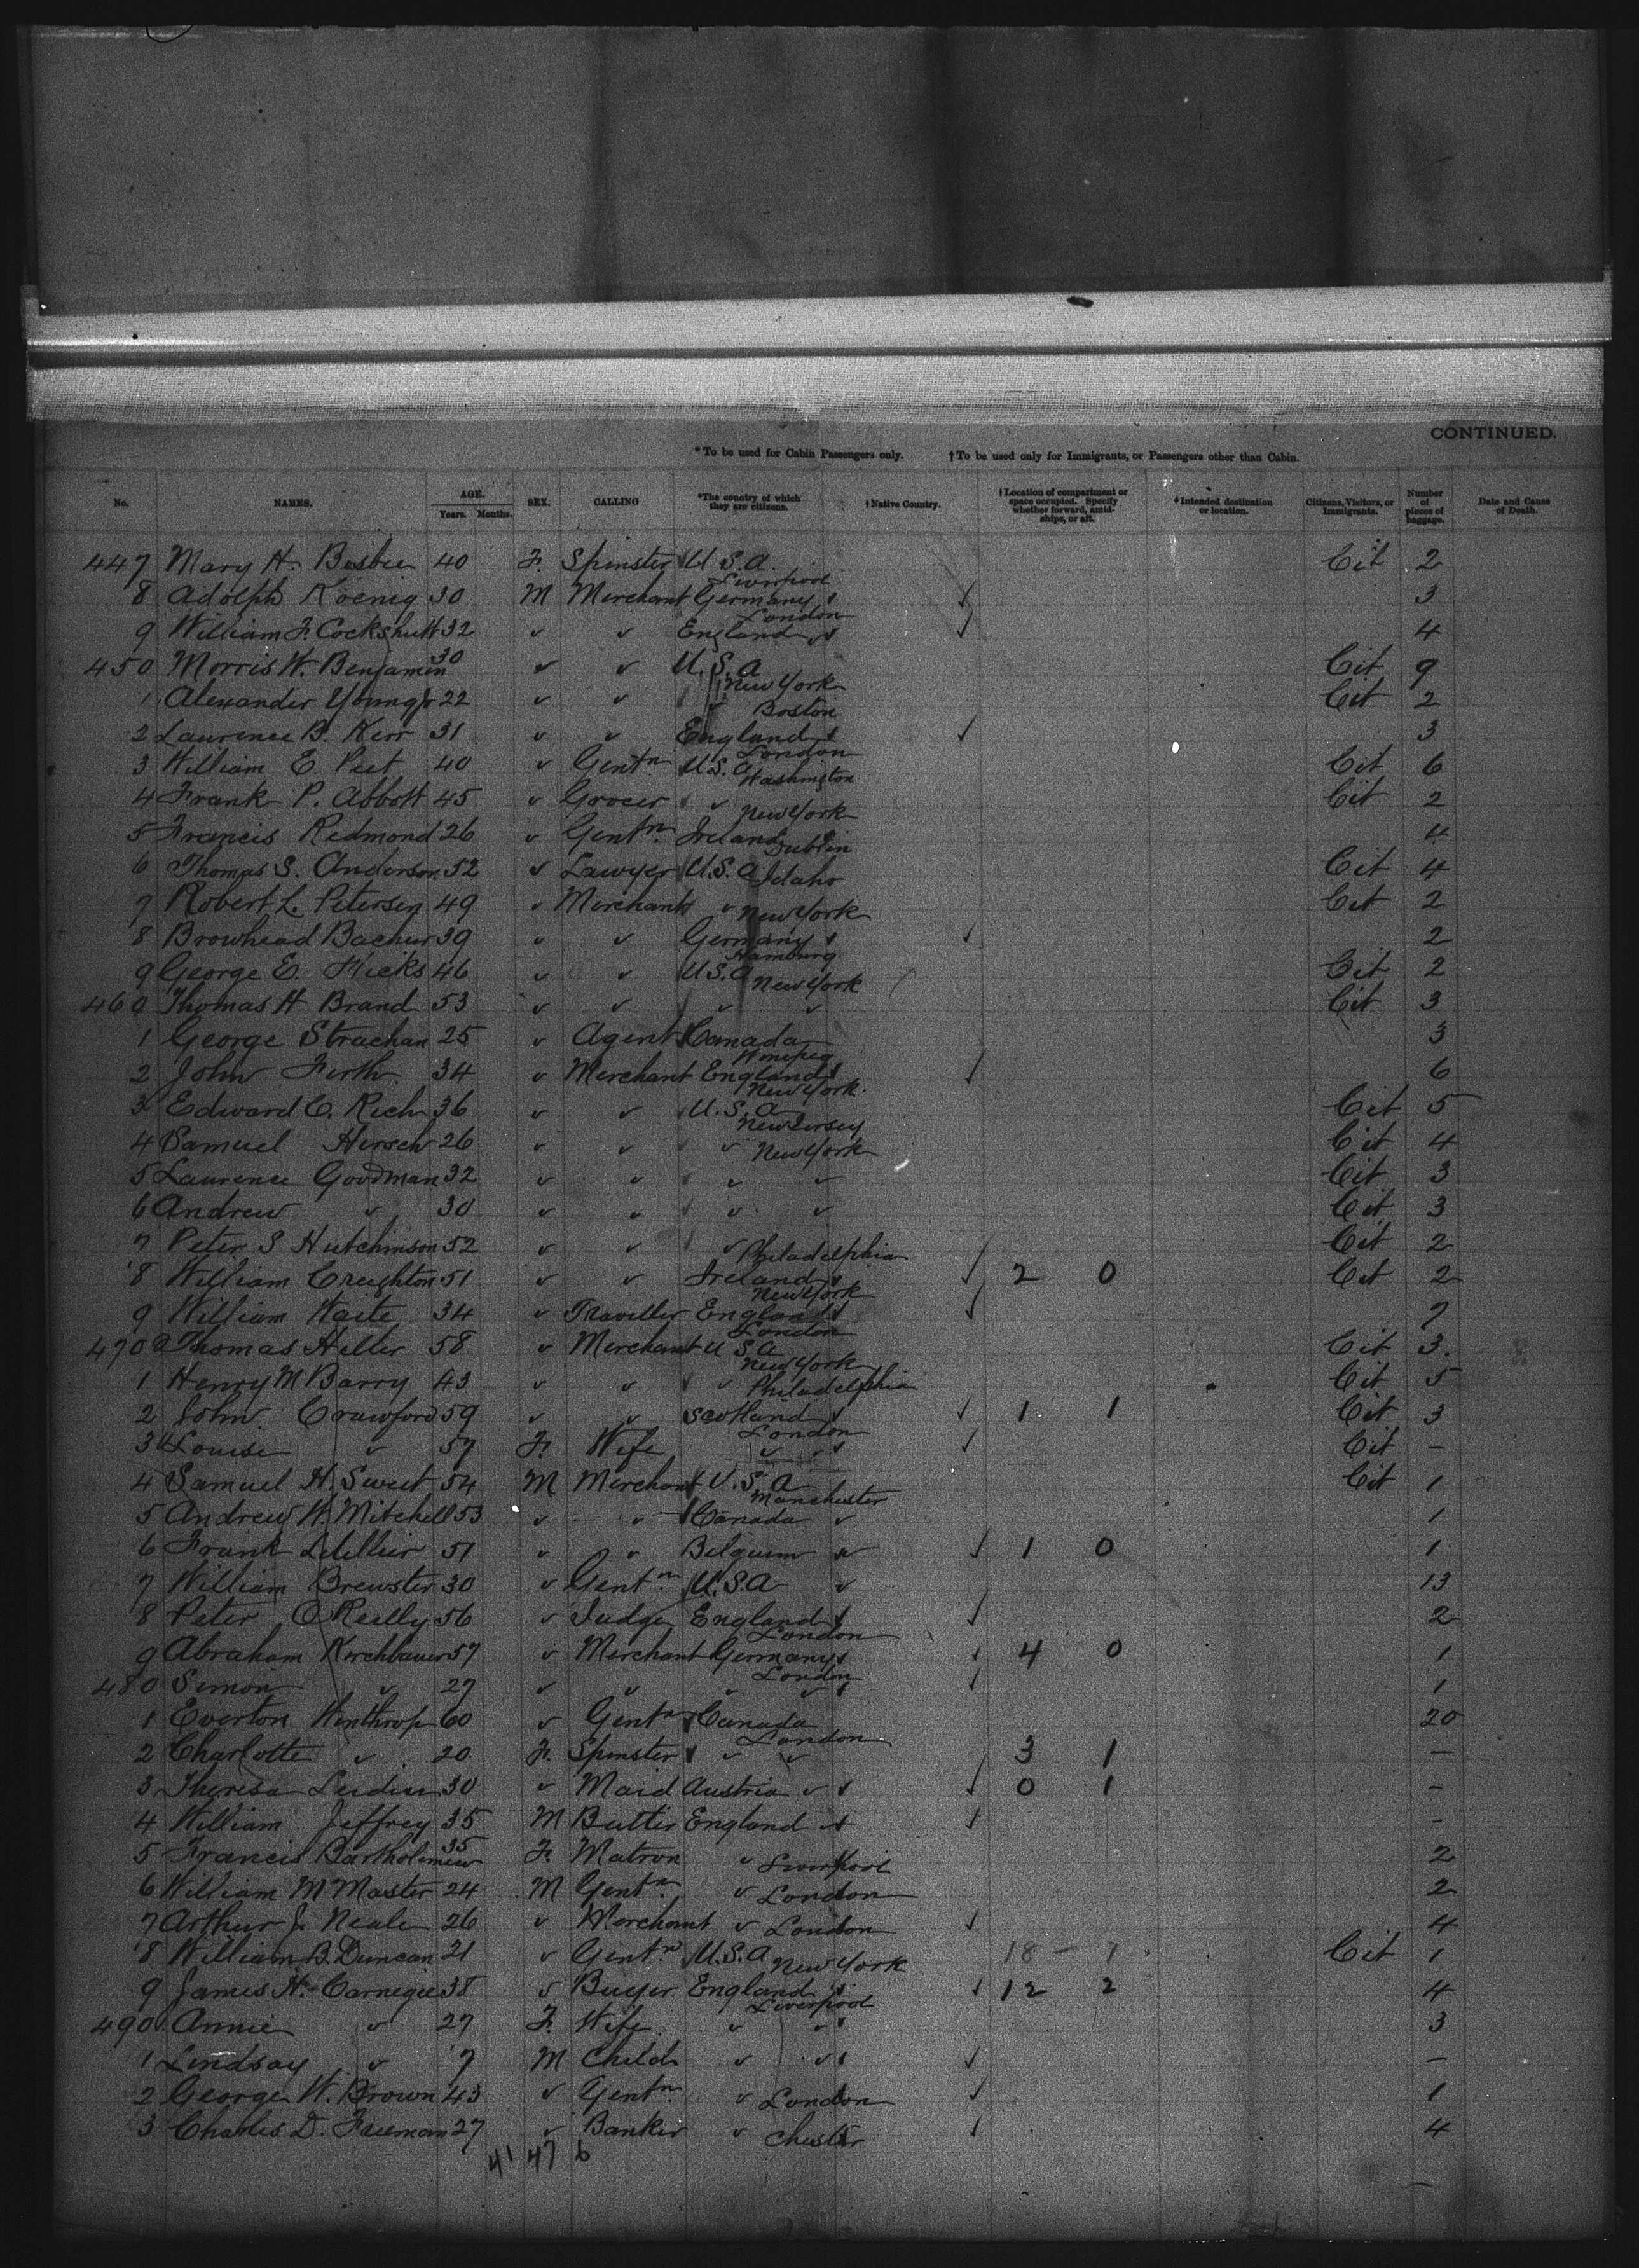 CONTINUED.
*To be used for Cabin Passengers only. †To be used only for Immigrants, or Passengers other than Cabin.
No. NAMES. AGE. Years. Months. SEX. CALLING *The country of which they are citizens. †Native Country. †Location of compartment or space occupied. Specify whether forward, amidships, or aft. †Intended destination or location. Citizens, Visitors, or Immigrants. Number of pieces of baggage. Date and Cause of Death.
447 Mary H. Busbee 40 F. Spinster U.S.A. Liverpool Cit 2
8 Adolph Koenig 30 M Merchant Germany London 3
9 William F. Cockshutt 32 " " England " 4
450 Morris W. Benjamin 30 " " U.S.A New York Cit 9
1 Alexander Young Jr 22 " " " Boston Cit 2
2 Laurence B. Kerr 31 " " England London 3
3 William E. Peet 40 " Gentn. U.S.A Washington Cit 6
4 Frank P. Abbott 45 " Grocer " New York Cit 2
5 Francis Redmond 26 " Gentn. Ireland Dublin 4
6 Thomas S. Anderson 52 " Lawyer U.S.A Idaho Cit 4
7 Robert L. Petersen 49 " Merchant " New York Cit 2
8 Browhead Bachur 39 " " Germany Hamburg 2
9 George E. Hicks 46 " " U.S.A New York Cit 2
460 Thomas H Brand 53 " " " " Cit 3
1 George Strachan 25 " Agent Canada Winipeg 3
2 John Firth 34 " Merchant England New York 6
3 Edward C. Rich 36 " " U.S.A New Jersey Cit 5
4 Samuel Hirsch 26 " " " New York Cit 4
5 Laurence Goodman 32 " " " " Cit 3
6 Andrew " 30 " " " " Cit 3
7 Peter S Hutchinson 52 " " " Philadelphia Cit 2
8 William Creighton 51 " " Ireland New York 2 0 Cit 2
9 William Waite 34 " Traveller England London 7
470 Thomas Heller 58 " Merchant U.S.A New York Cit 3.
1 Henry M Barry 43 " " " Philadelphia Cit 5
2 John Crawford 59 " " Scotland London 1 1 Cit 3
3 Louise " 57 F. Wife " " Cit –
4 Samuel H. Sweet 54 M Merchant U.S.A Manchester Cit 1
5 Andrew W. Mitchell 53 " " Canada " 1
6 Frank 51 " " Belgium " 1 0 1
7 William Brewster 30 " Gentn. U.S.A " 13
8 Peter O'Reilly 56 " Judge England London 2
9 Abraham Kirchbauer 57 " Merchant Germany London 4 0 1
480 Simon " 27 " " " " 1
1 Everton Winthrop 60 " Gentn Canada London 20
2 Charlotte " 20 F. Spinster " " 3 1 –
3 Theresa 30 " Maid Austria " 0 1 –
4 William Jeffrey 35 M Butler England " –
5 Francis Bartholomew 35 F. Matron " Liverpool 2
6 William M Master 24 M Gentn. " London 2
7 Arthur J. Neale 26 " Merchant " London 4
8 William B. Duncan 21 " Gentn U.S.A New York 18 – 1 Cit 1
9 James H. Carnegie 38 " Buyer England Liverpool 12 2 4
490 Annie " 27 F. Wife " " 3
1 Lindsay " 7 M Child " " –
2 George W. Brown 43 " Gentn. " London 1
3 Charles D. Freeman 27 " Banker " Chester 4
41 47 6